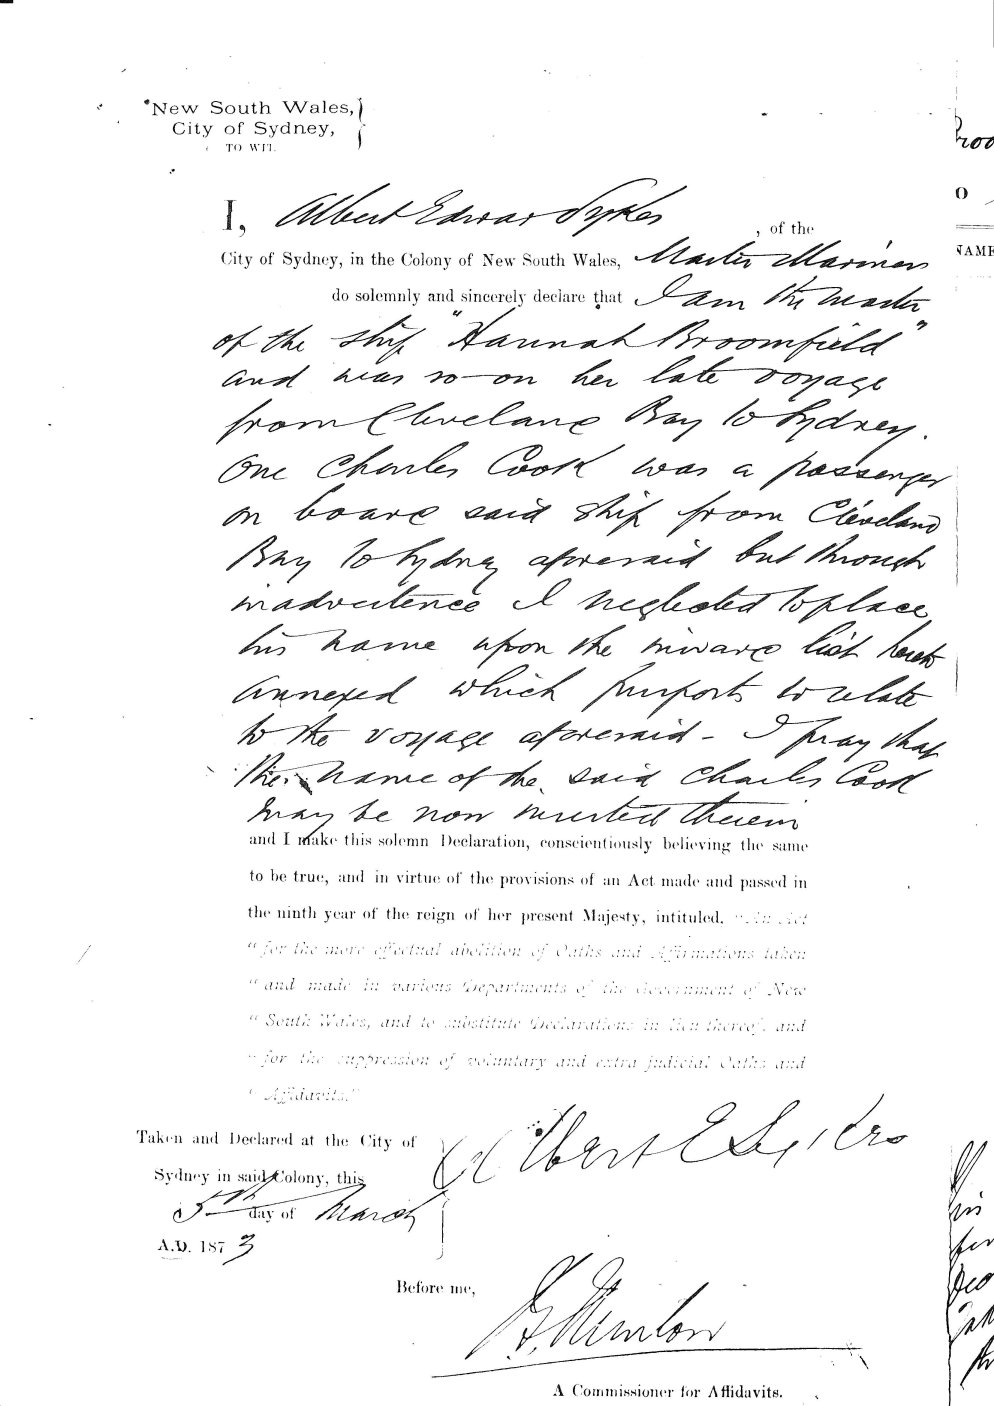 New South Wales,
City of Sydney,
TO WIT.
I, Albert Edwar Sykes, of the
City of Sydney, in the Colony of New South Wales, Master Mariner
do solemnly and sincerely declare that I am the Master
of the ship "Hannah Broomfield"
and was so on her late voyage
from Cleveland Bay to Sydney.
One Charles Cook was a passenger
on board said ship from Cleveland
Bay to Sydney aforesaid but through
inadvertence I neglected to place
his name upon the inward list hereto
annexed which purports to relate
to the voyage aforesaid - I pray that
the name of the said Charles Cook
may be now inserted therein
and I make this solemn Declaration, conscientiously believing the same
to be true, and in virtue of the provisions of an Act made and passed in
the ninth year of the reign of her present Majesty, intituled, "An Act
"for the more effectual abolition of Oaths and Affirmations taken
"and made in various Departments of the Government of New
"South Wales, and to substitute Declarations in lieu thereof, and
"for the suppression of voluntary and extra judicial Oaths and
"Affidavits."
Taken and Declared at the City of
Sydney in said Colony, this
5th day of March
A.D. 1873
Albert E Sykes
Before me,
A Commissioner for Affidavits.
O
NAME